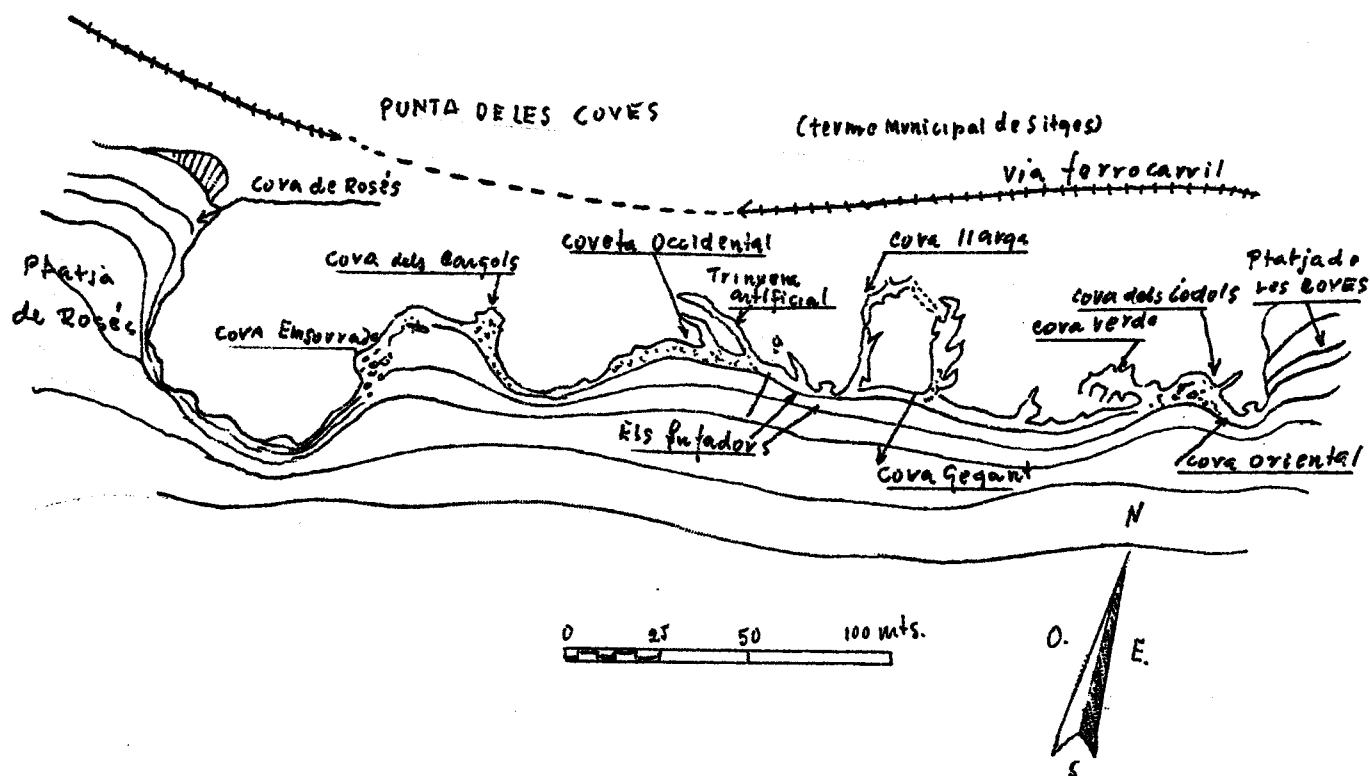 PUNTA DE LES COVES
(terme Municipal de Sitges)
via ferrocarril
cova de Rosés
Platja
de Rosés
cova dels Cargols
cova Emsorrada
coveta Occidental
Trinxera
artificial
cova llarga
Platja de
les coves
cova dels Códols
cova verda
Els Bufadors
cova Gegant
cova Oriental
N
O.
E.
S
0 25 50 100 mts.